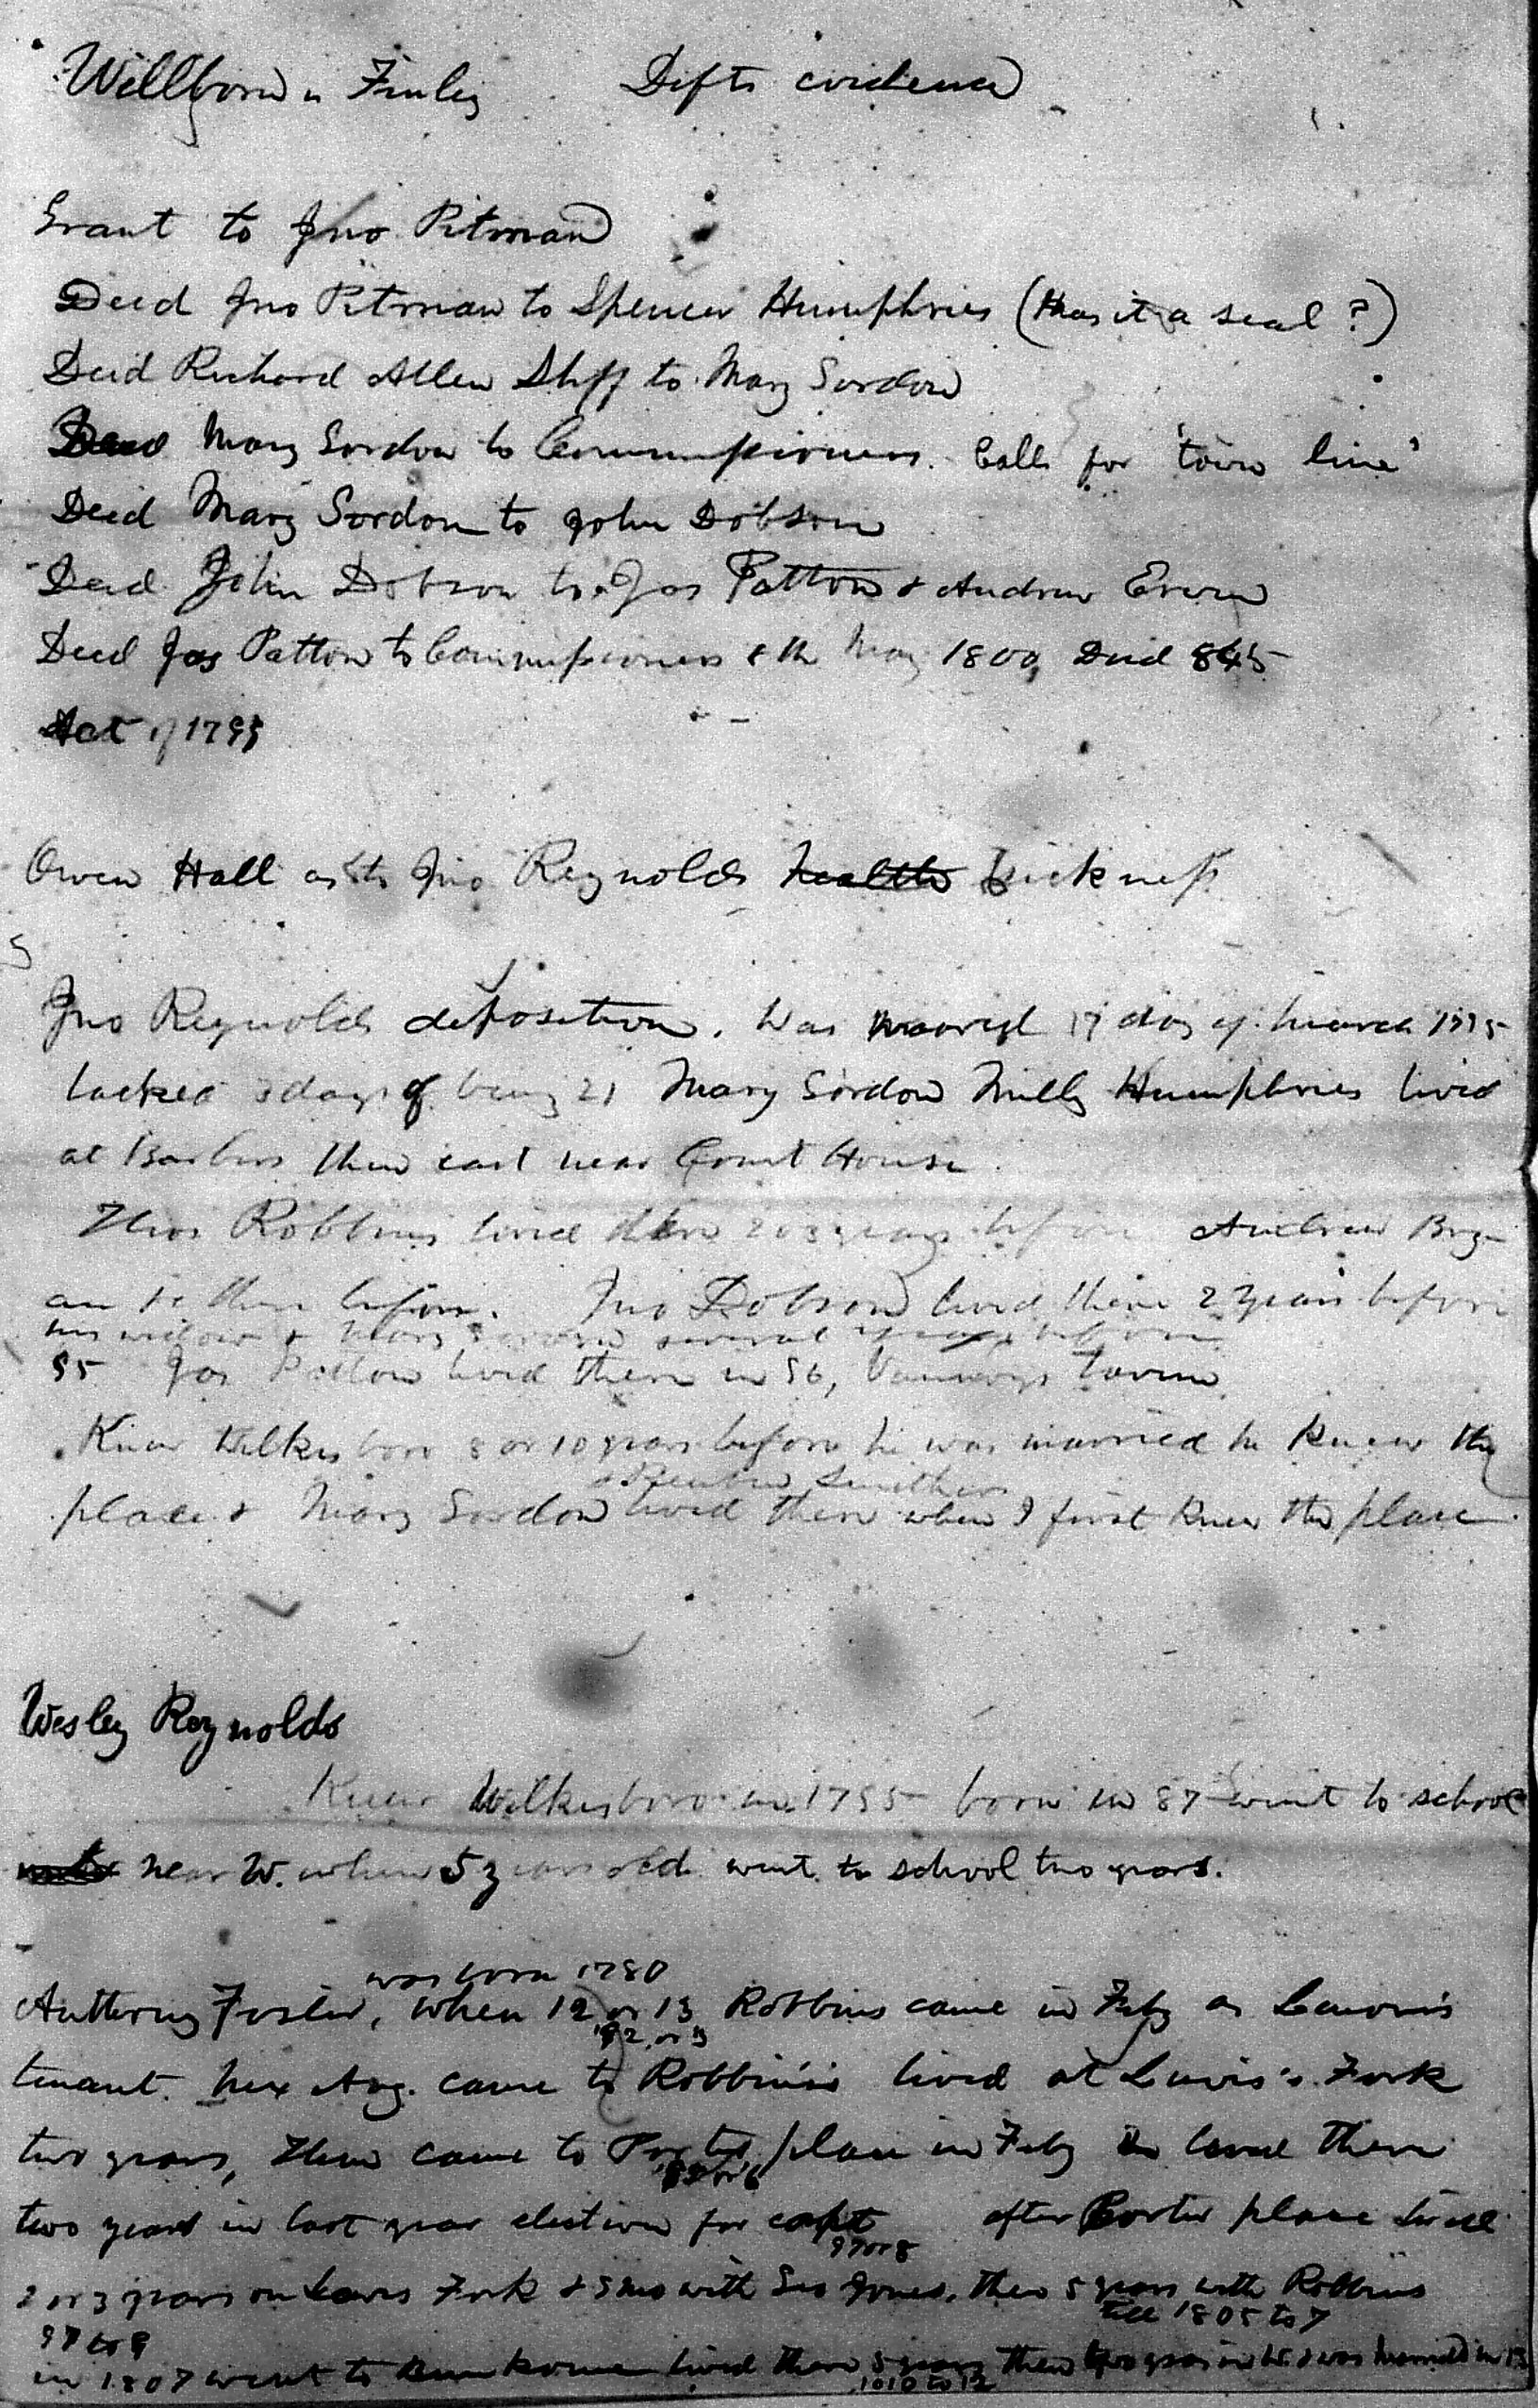 Willborn v Finley Defts evidence
Grant to Jno Pitman
Deed Jno Pitman to Spencer Humphries (Has it a seal ?)
Deed Richard Allen Shff to Mary Gordon
Deed Mary Gordon to Commissioners. Calls for 'town line'
Deed Mary Gordon to John Dobson
Deed John Dobson to Jas Patton & Andrew Erwin
Deed Jas Patton to Commissioners 8th May 1800, Deed 845
Act of 1795
Owen Hall as to Jno Reynolds health sickness
Jno Reynolds deposition. Was married 17 day of March 1795
lacked 3 days of being 21 Mary Gordon Milly Humphries lived
at Barbers then east near Court House.
Thos Robbins lived there 2 or 3 years before Andrew Bry-
an lived there before. Jno Dobson lived there 2 years before
his widow & Mary Gordon several years before
95 Jas Patton lived there in 96, tavern
Knew Wilkesboro 8 or 10 years before he was married he knew the
& Reuben Smithers
place & Mary Gordon lived there when I first knew the place.
Wesley Reynolds
Knew Wilkesboro in 1795 born in 87 went to school
near W. when 5 years old went to school two years.
was born 1780
Anthony Foster, when 12 or 13 Robbins came in Feby as Lenoir's
92 or 3
tenant. Nex Aug. came to Robbins's lived at Lewis's Fork
two years, then came to Porter place in Feby lived there
95 or 6
two years in last year election for capt after Porter place lived
97 or 8
2 or 3 years on Lewis Fork & 5 mo with Geo Jones, then 5 years with Robbins
till 1805 to 7
97 to 9
in 1807 went to Buncombe lived there 5 years then two years in W. & was married in 13
1810 to 12